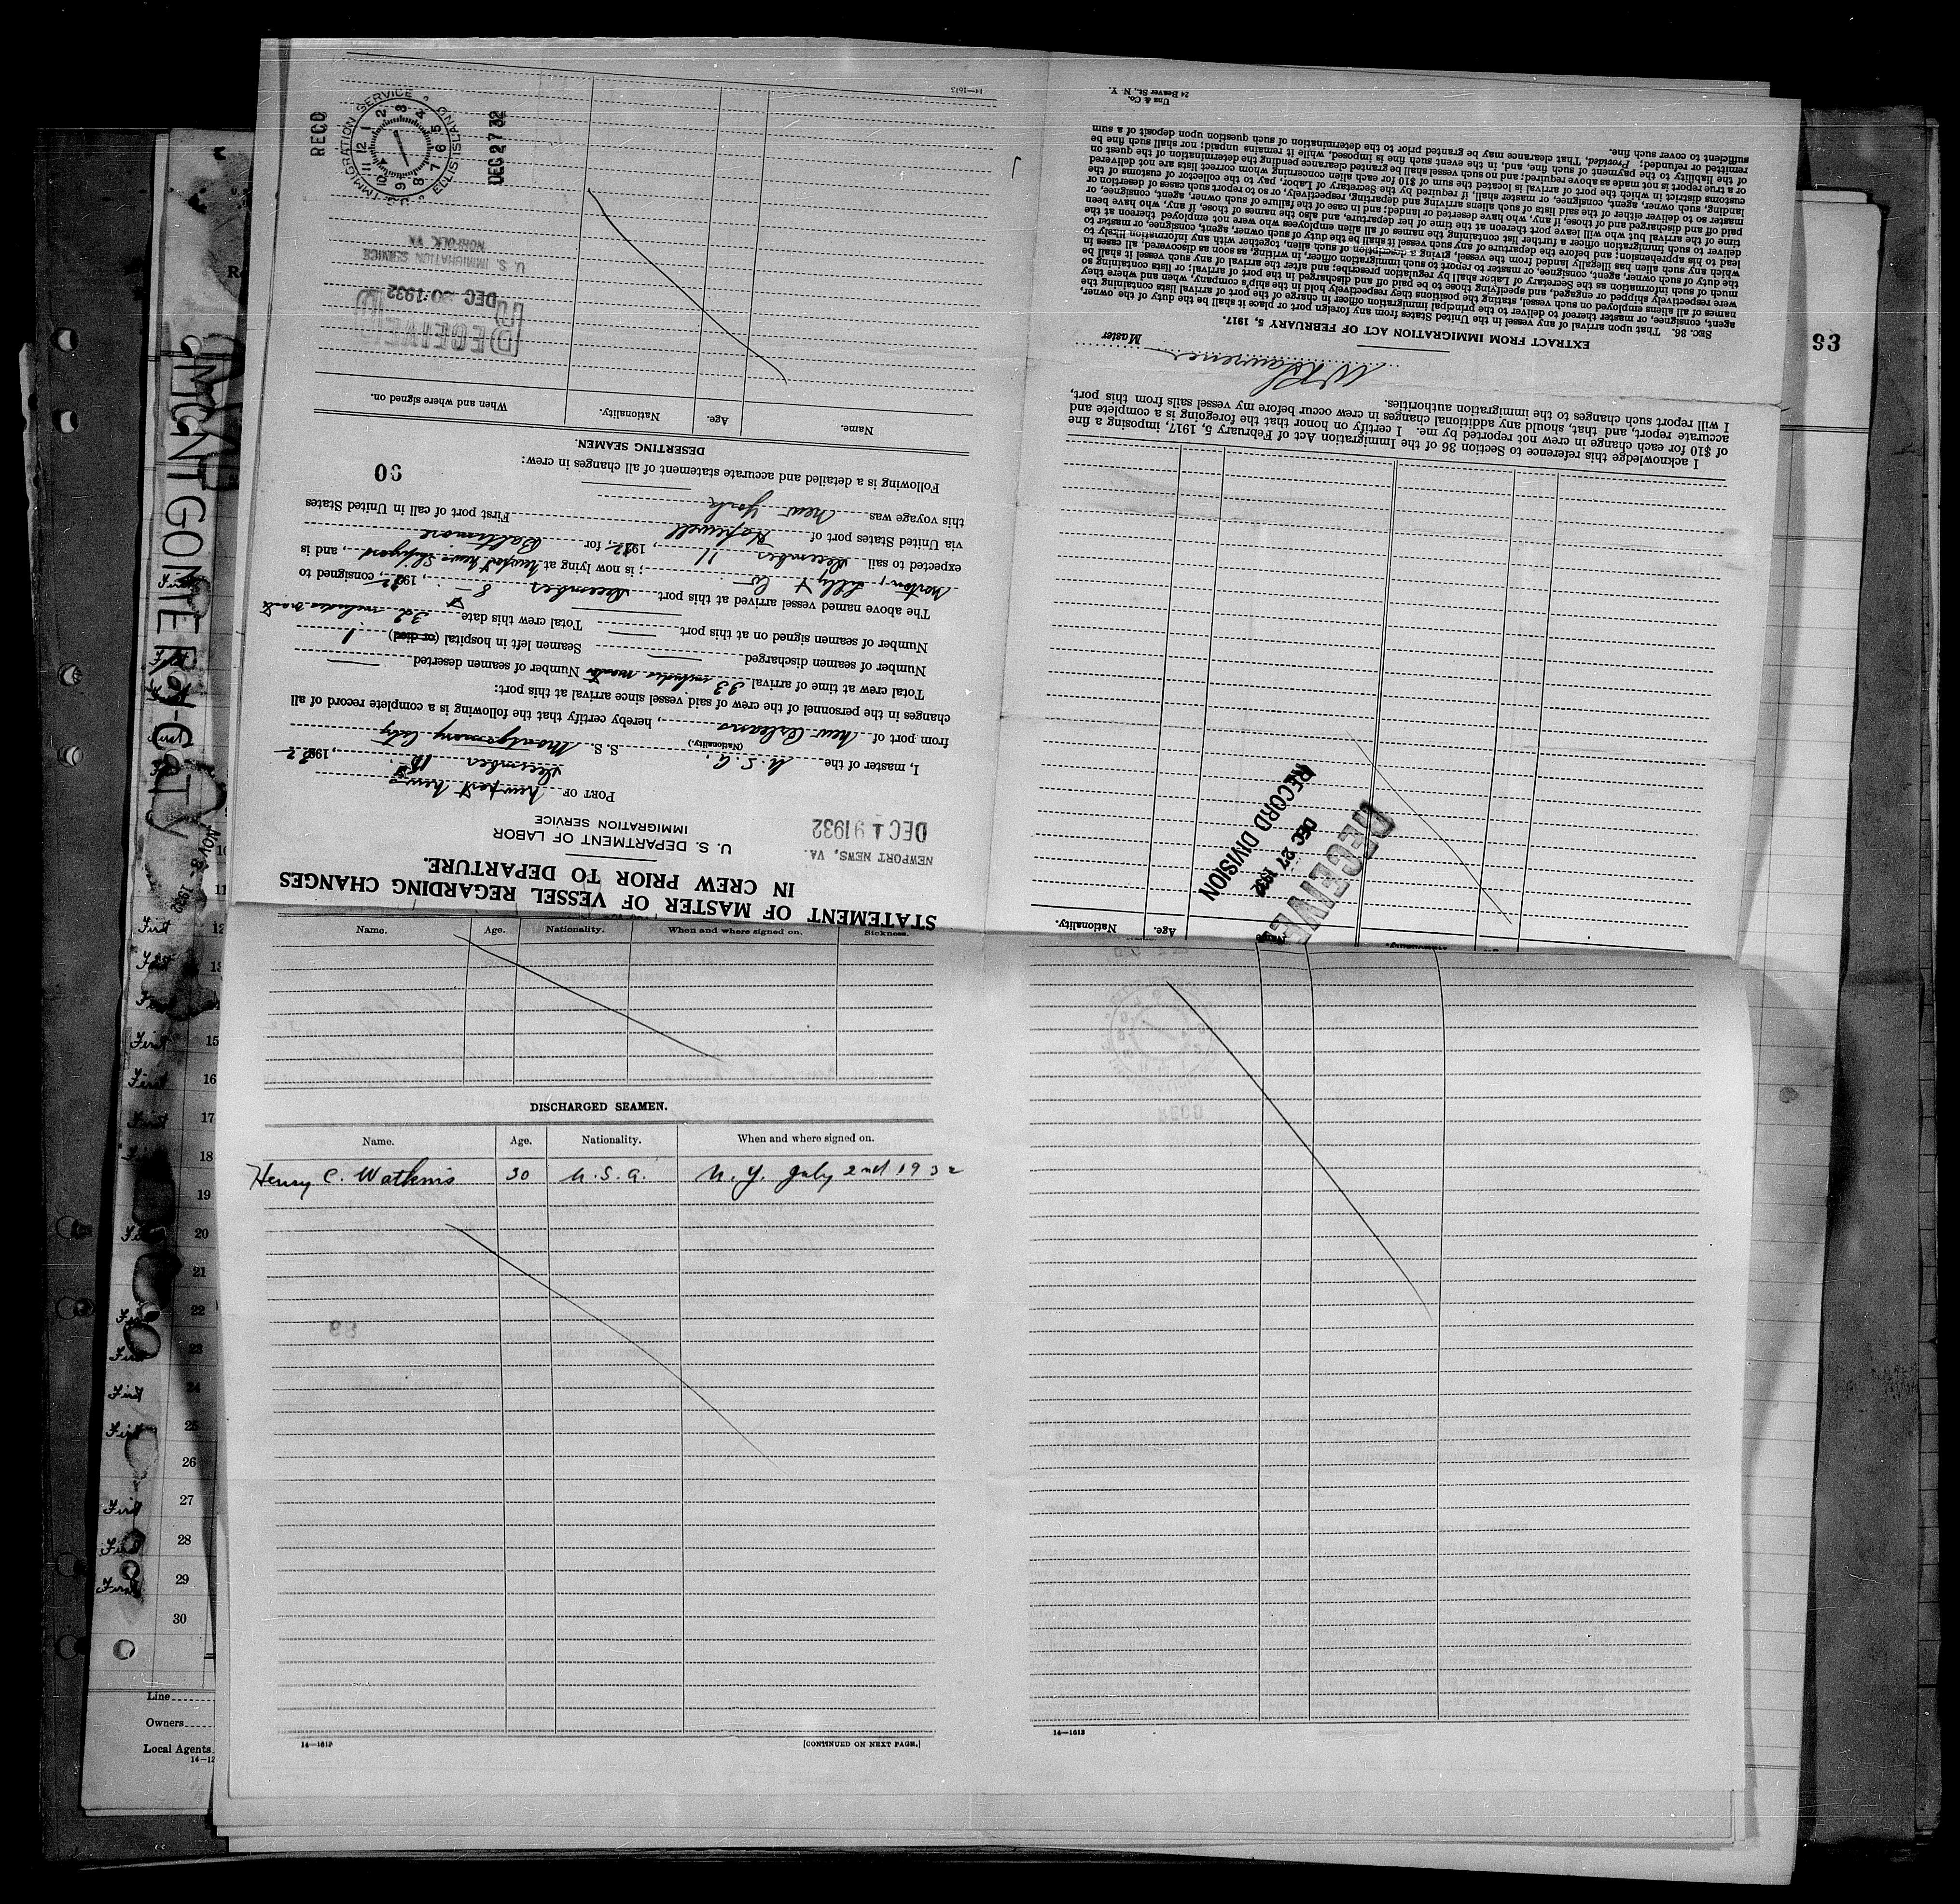 STATEMENT OF MASTER OF VESSEL REGARDING CHANGES
IN CREW PRIOR TO DEPARTURE.
U. S. DEPARTMENT OF LABOR
IMMIGRATION SERVICE
NEWPORT NEWS, VA.
DEC 19 1932
PORT OF Newport News
December
I, master of the U.S.A. S. S. Montgomery City
(Nationality.)
from port of New Orleans, hereby certify that the following is a complete record of all
changes in the personnel of the crew of said vessel since arrival at this port:
Total crew at time of arrival 33 includes master Number of seamen deserted
Number of seamen discharged Seamen left in hospital (or died) 1
Number of seamen signed on at this port Total crew this date 32 includes master
The above named vessel arrived at this port December 8, 1932, consigned to
Norton, Lilly & Co; is now lying at Newport News Shipyard, and is
expected to sail December 11, 1932, for Baltimore
via United States port of Hopewell First port of call in United States
this voyage was New York
Following is a detailed and accurate statement of all changes in crew:
60
DESERTING SEAMEN.
Name. Age. Nationality. When and where signed on.
RECEIVED
DEC 20 1932
U. S. IMMIGRATION SERVICE
NORFOLK, VA
RECD
U.S. IMMIGRATION SERVICE
ELLIS ISLAND
DEC 27 32
14—1613
Name. Age. Nationality.
RECEIVE
DEC 27 1932
RECORD DIVISION
I acknowledge this reference to Section 36 of the Immigration Act of February 5, 1917, imposing a fine
of $10 for each change in crew not reported by me. I certify on honor that the foregoing is a complete and
accurate report, and that, should any additional changes in crew occur before my vessel sails from this port,
I will report such changes to the immigration authorities.
Master
EXTRACT FROM IMMIGRATION ACT OF FEBRUARY 5, 1917.
SEC. 36. That upon arrival of any vessel in the United States from any foreign port or place it shall be the duty of the owner,
agent, consignee, or master thereof to deliver to the principal immigration officer in charge of the port of arrival lists containing the
names of all aliens employed on such vessel, stating the positions they respectively hold in the ship's company, when and where they
were respectively shipped or engaged, and specifying those to be paid off and discharged in the port of arrival; or lists containing so
much of such information as the Secretary of Labor shall by regulation prescribe; and after the arrival of any such vessel it shall be
the duty of such owner, agent, consignee, or master to report to such immigration officer, in writing, as soon as discovered, all cases in
which any such alien has illegally landed from the vessel, giving a description of such alien, together with any information likely to
lead to his apprehension; and before the departure of any such vessel it shall be the duty of such owner, agent, consignee, or master to
deliver to such immigration officer a further list containing the names of all alien employees who were not employed thereon at the
time of the arrival but who will leave port thereon at the time of her departure, and also the names of those, if any, who have been
paid off and discharged and of those, if any, who have deserted or landed; and in case of the failure of such owner, agent, consignee, or
master so to deliver either of the said lists of such aliens arriving and departing, respectively, or so to report such cases of desertion or
landing, such owner, agent, consignee, or master, shall, if required by the Secretary of Labor, pay to the collector of customs of the
customs district in which the port of arrival is located the sum of $10 for each alien concerning whom correct lists are not delivered
or a true report is not made as above required; and no such vessel shall be granted clearance pending the determination of the question
of the liability to the payment of such fine, and, in the event such fine is imposed, while it remains unpaid; nor shall such fine be
remitted or refunded; Provided, That clearance may be granted prior to the determination of such question upon deposit of a sum
sufficient to cover such fine.
Unz & Co.
24 Beaver St., N. Y.
Name. Age. Nationality. When and where signed on. Sickness.
DISCHARGED SEAMEN.
Name. Age. Nationality. When and where signed on.
Henry C. Watkins 30 U.S.A. N.Y. July 2nd 1932
14—1613 [CONTINUED ON NEXT PAGE.]
14—1613
MONTGOMERY CITY
NOV 1932
93
First 12
First 13
First 14
First 15
First 16
First 17
First 18
19
First 20
21
First 22
First 23
First 24
First 25
26
First 27
First 28
First 29
30
Line
Owners
Local Agents